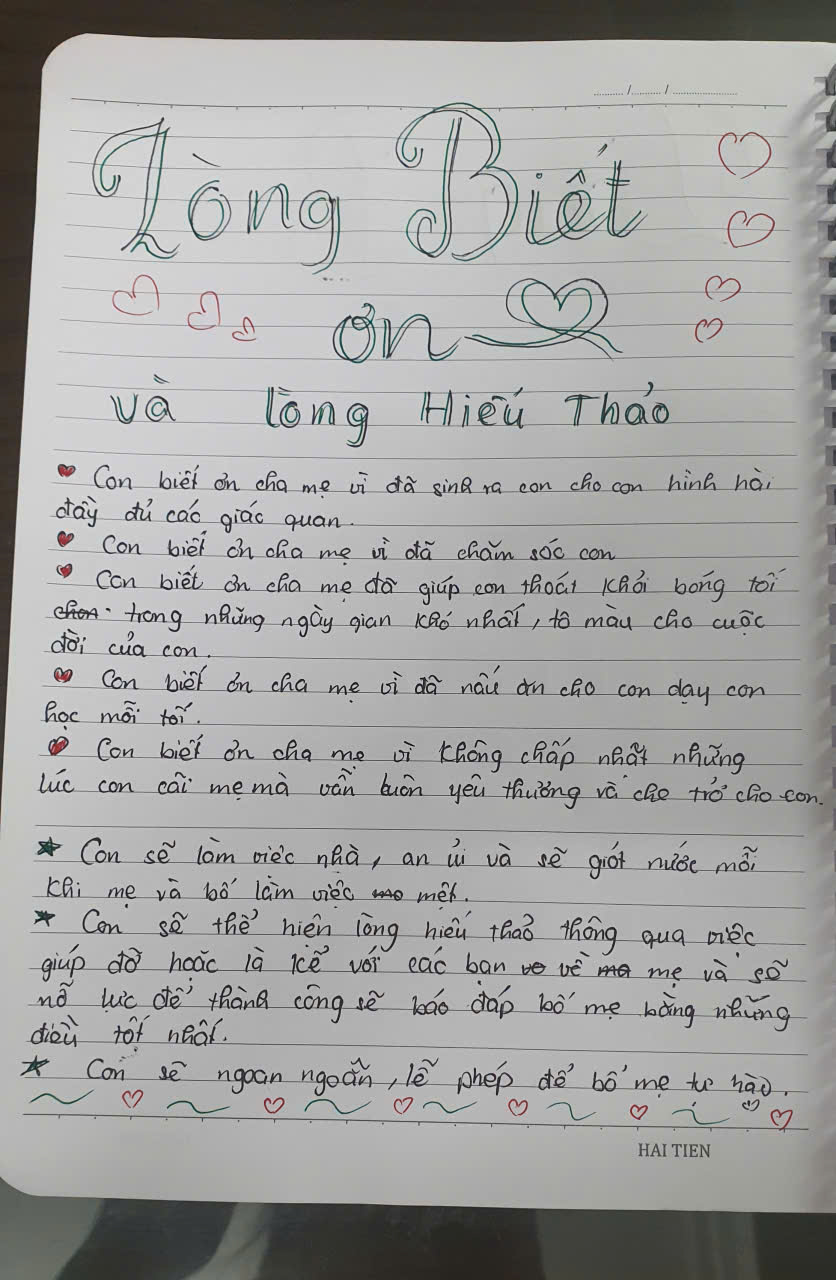 Lòng Biết
ơn
và lòng Hiếu Thảo
Con biết ơn cha mẹ vì đã sinh ra con cho con hình hài
đầy đủ các giác quan.
Con biết ơn cha mẹ vì đã chăm sóc con
Con biết ơn cha mẹ đã giúp con thoát khỏi bóng tối
trong những ngày gian khó nhất, tô màu cho cuộc
đời của con.
Con biết ơn cha mẹ vì đã nấu ăn cho con dạy con
học mỗi tối.
Con biết ơn cha mẹ vì không chấp nhất những
lúc con cãi mẹ mà vẫn luôn yêu thương và che trở cho con.
Con sẽ làm việc nhà, an ủi và sẽ giót nước mỗi
khi mẹ và bố làm việc mệt.
Con sẽ thể hiện lòng hiếu thảo thông qua việc
giúp đỡ hoặc là kể với các bạn về mẹ và sẽ
nỗ lực để thành công sẽ báo đáp bố mẹ bằng những
điều tốt nhất.
Con sẽ ngoan ngoãn, lễ phép để bố mẹ tự hào.
HAI TIEN